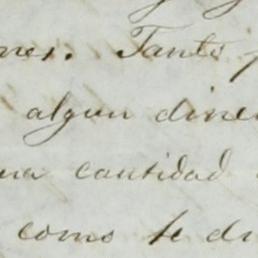 nes. Tanto
algun dine
na cantidad
como te di